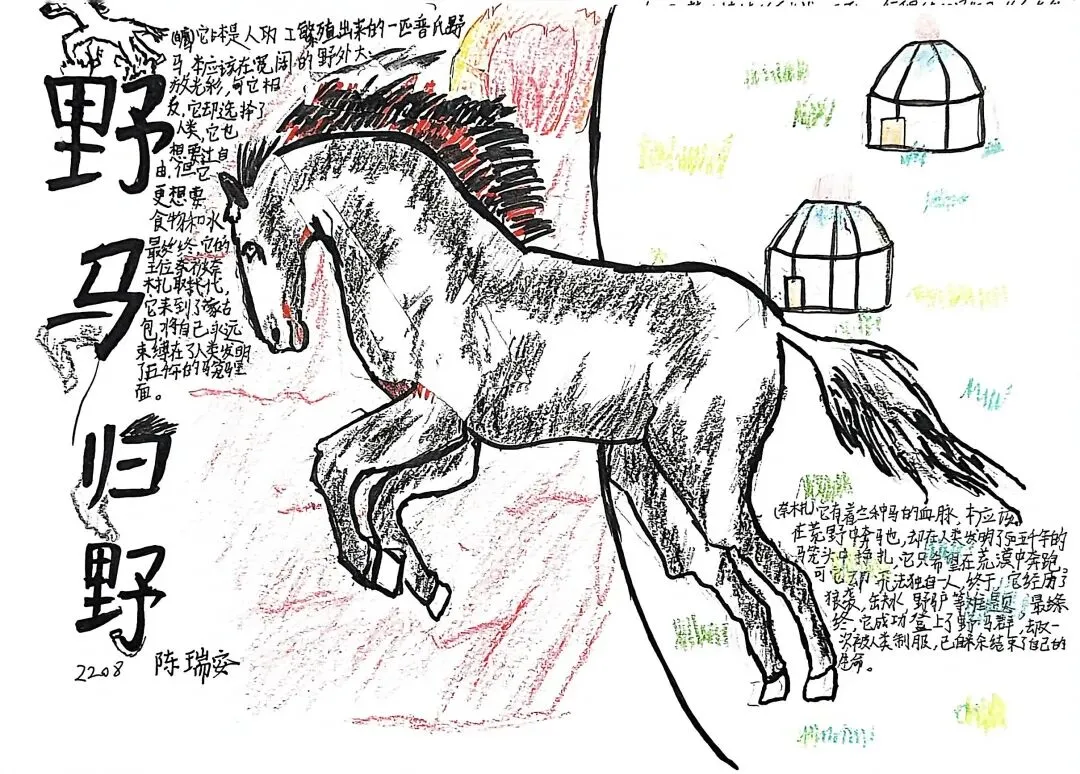 野马归野
它本是人功工繁殖出来的一匹普氏野
马,本应该在宽阔的野外大
放光彩,可它相
反,它却选择了
人类,它也
想要过自
由,但它
更想要
食物和水
最终终,它的
王位
木扎取替代,
它来到了蒙古
包,将自己永远
束缚在了人类发明
了五千年的
面。
2208 陈瑞安
它有着三种马的血脉,本应该
在荒野中奔马也,却在人类发明了5五千年的
马笼头中挣扎,它只希望在荒漠中奔跑,
可它却无法独自一人,终于,它经历了
狼袭,出水,野驴等难题,最终
终,它成功登上了野马群,去又一
次被人类制服,已解余结束了自己的
生命。